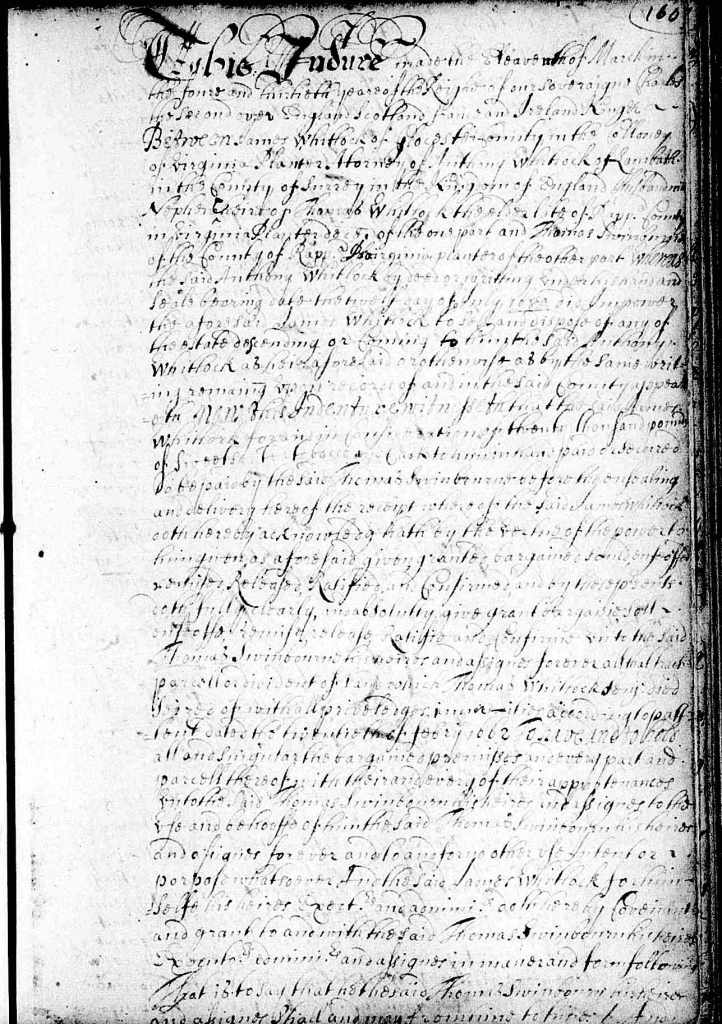 160
This Indure made the Eleaventh of March in
the foure and thirtieth yeare of the Reigne of our Soveraigne Charles
the Second over England Scotland france and Ireland King &c
Between James Whitlock of Glocester County in the Colloney
of Virginia Planter Attorney of Anthony Whitlock of Lambeth
in the County of Surrey in the Kingdom of England
Nephew & heire of Thomas Whitlock the elder late of Rapp. County
in Virginia Planter dec.d of the one part and Thomas Swinbourne
of the County of Rapp. in Virginia planter of the other part whereas
the said Anthony Whitlock by deed or writting under his hand and
seale bearing date the day of July did Impower
the aforesaid James Whitlock to sell and dispose of any of
the estate descending or Coming to him the said Anthony
Whitlock as heire aforesaid or otherwise as by the same writ-
ing remaining upon record of and in the said County appear
-eth Now this Indenture witnesseth that the said James
Whitlock for and in Consideration of twenty thousand pounds
of sweete sented tobacco and Caske to him in hand paid or secured
to be paid by the said Thomas Swinbourne before the ensealing
and delivery hereof the receipt whereof the said James Whitlock
doth hereby acknowledg hath by the vertue of the power to
him given as aforesaid given granted bargained sould enfeoffed
remised Released Ratified and Confirmed and by these presents
doth fully clearly and absolutly give grant bargaine sell
enfeoffe Remise release Ratifie and Confirme unto the said
Thomas Swinbourne his heires and assignes forever all that tract
parcell or divident of land which Thomas Whitlock Sen.r died
seized of with all priveledges according to patt-
tent dated the twentieth of To have and to hold
all and singular the bargained premisses and every part and
parcell thereof with their and every of their appurtenances
unto the said Thomas Swinbourn his heires and assignes to the
use and behoofe of him the said Thomas Swinbourn his heires
and assignes forever and to and for no other use intent or
porpose whatsoever And the said James Whitlock for him
selfe his heires Execut.rs and admin.rs doth hereby Covenant
and grant to and with the said Thomas Swinbourn his heires
Execut.rs admini.rs and assignes in maner and form followeing
That is to say that he the said Thomas Swinbourn his heires
and assignes shall and may from time to time